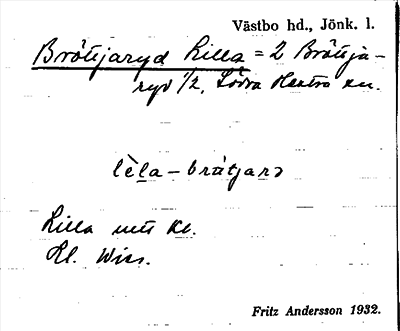 Västbo hd., Jönk. l.
Bröttjaryd Lilla = 2 Bröttja-
ryd 1/2, Södra Hestra sn.
lèla-brátjarə
Lilla utt kl.
Kl. Wiss.
Fritz Andersson 1932.